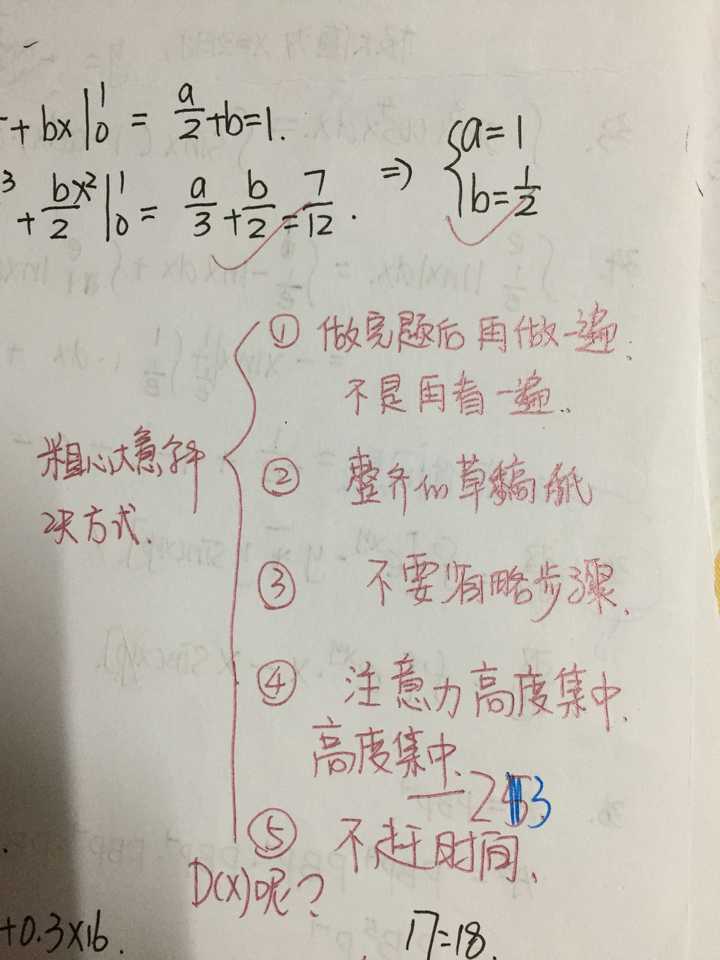 + bx|₀¹ = a/2 + b = 1.
³ + bx²/2|₀¹ = a/3 + b/2 = 7/12. ⇒ { a = 1
b = 1/2
粗心大意解
决方式.
① 做完题后再做一遍.
不是再看一遍.
② 整齐的草稿纸
③ 不要省略步骤.
④ 注意力高度集中.
高度集中.
⑤ 不赶时间.
D(X)呢?
+0.3×16.
17=18.